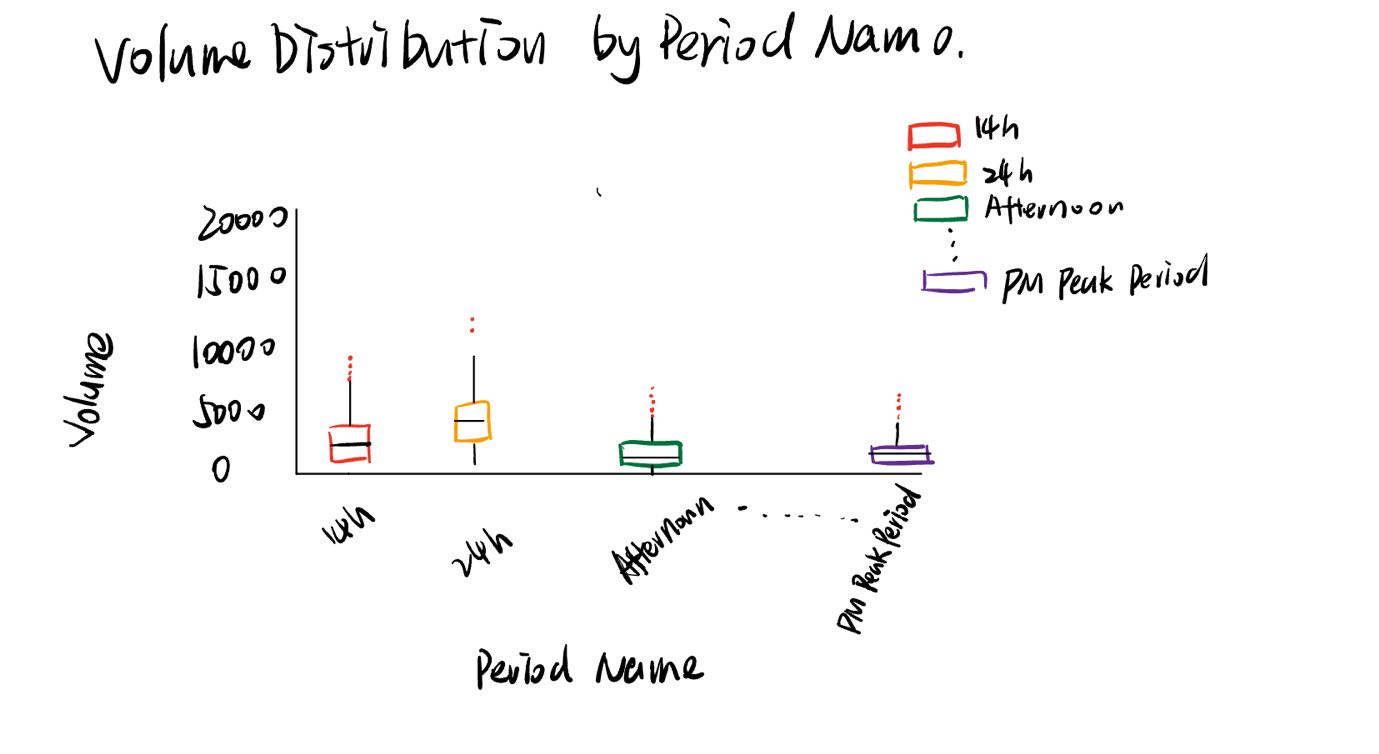 Volume Distribution by Period Name.
14h
24h
Afternoon
PM Peak Period
20000
15000
10000
5000
0
Volume
14h
24h
Afternoon
PM Peak Period
Period Name